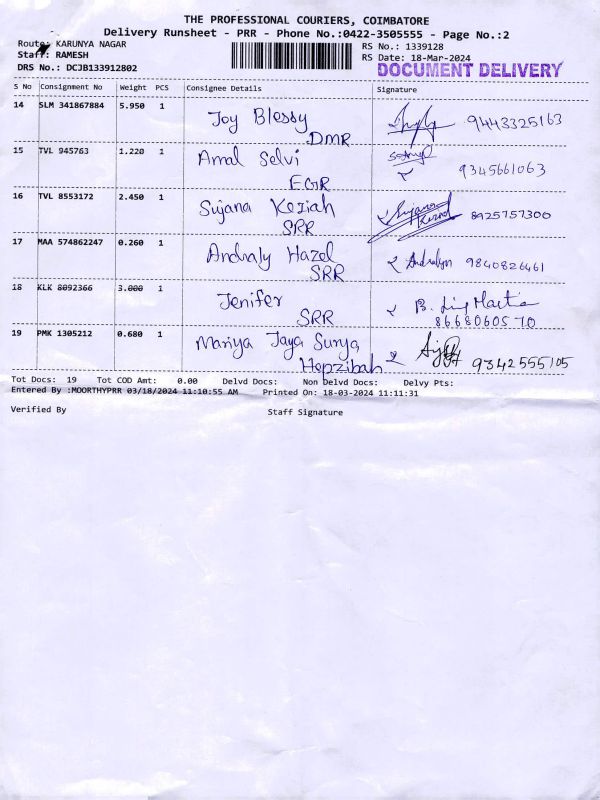 THE PROFESSIONAL COURIERS, COIMBATORE
Delivery Runsheet - PRR - Phone No.:0422-3505555 - Page No.:2
Route: KARUNYA NAGAR
RS No.: 1339128
Staff: RAMESH
RS Date: 18-Mar-2024
DRS No.: DCJB133912802
DOCUMENT DELIVERY
S No Consignment No Weight PCS Consignee Details Signature
14 SLM 341867884 5.950 1 Joy Blessy 9443325163
DMR
15 TVL 945763 1.220 1 Amal Selvi 9345661063
EGR
16 TVL 8553172 2.450 1 Sujana Keziah 8925757300
SRR
17 MAA 574862247 0.260 1 Andraly Hazel 9840826461
SRR
18 KLK 8092366 3.000 1 Jenifer
SRR 8668060570
19 PMK 1305212 0.680 1 Mariya Jaya Surya
Hepzibah 9342555105
Tot Docs: 19 Tot COD Amt: 0.00 Delvd Docs: Non Delvd Docs: Delvy Pts:
Entered By :MOORTHYPRR 03/18/2024 11:10:55 AM Printed On: 18-03-2024 11:11:31
Verified By Staff Signature